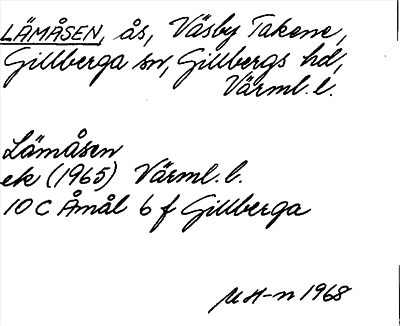 LÄMÅSEN, ås, Väsby Takene,
Gillberga sn, Gillbergs hd,
Värml. l.
Lämåsen
ek (1965) Värml. l.
10 C Åmål 6 f Gillberga
MH-n 1968